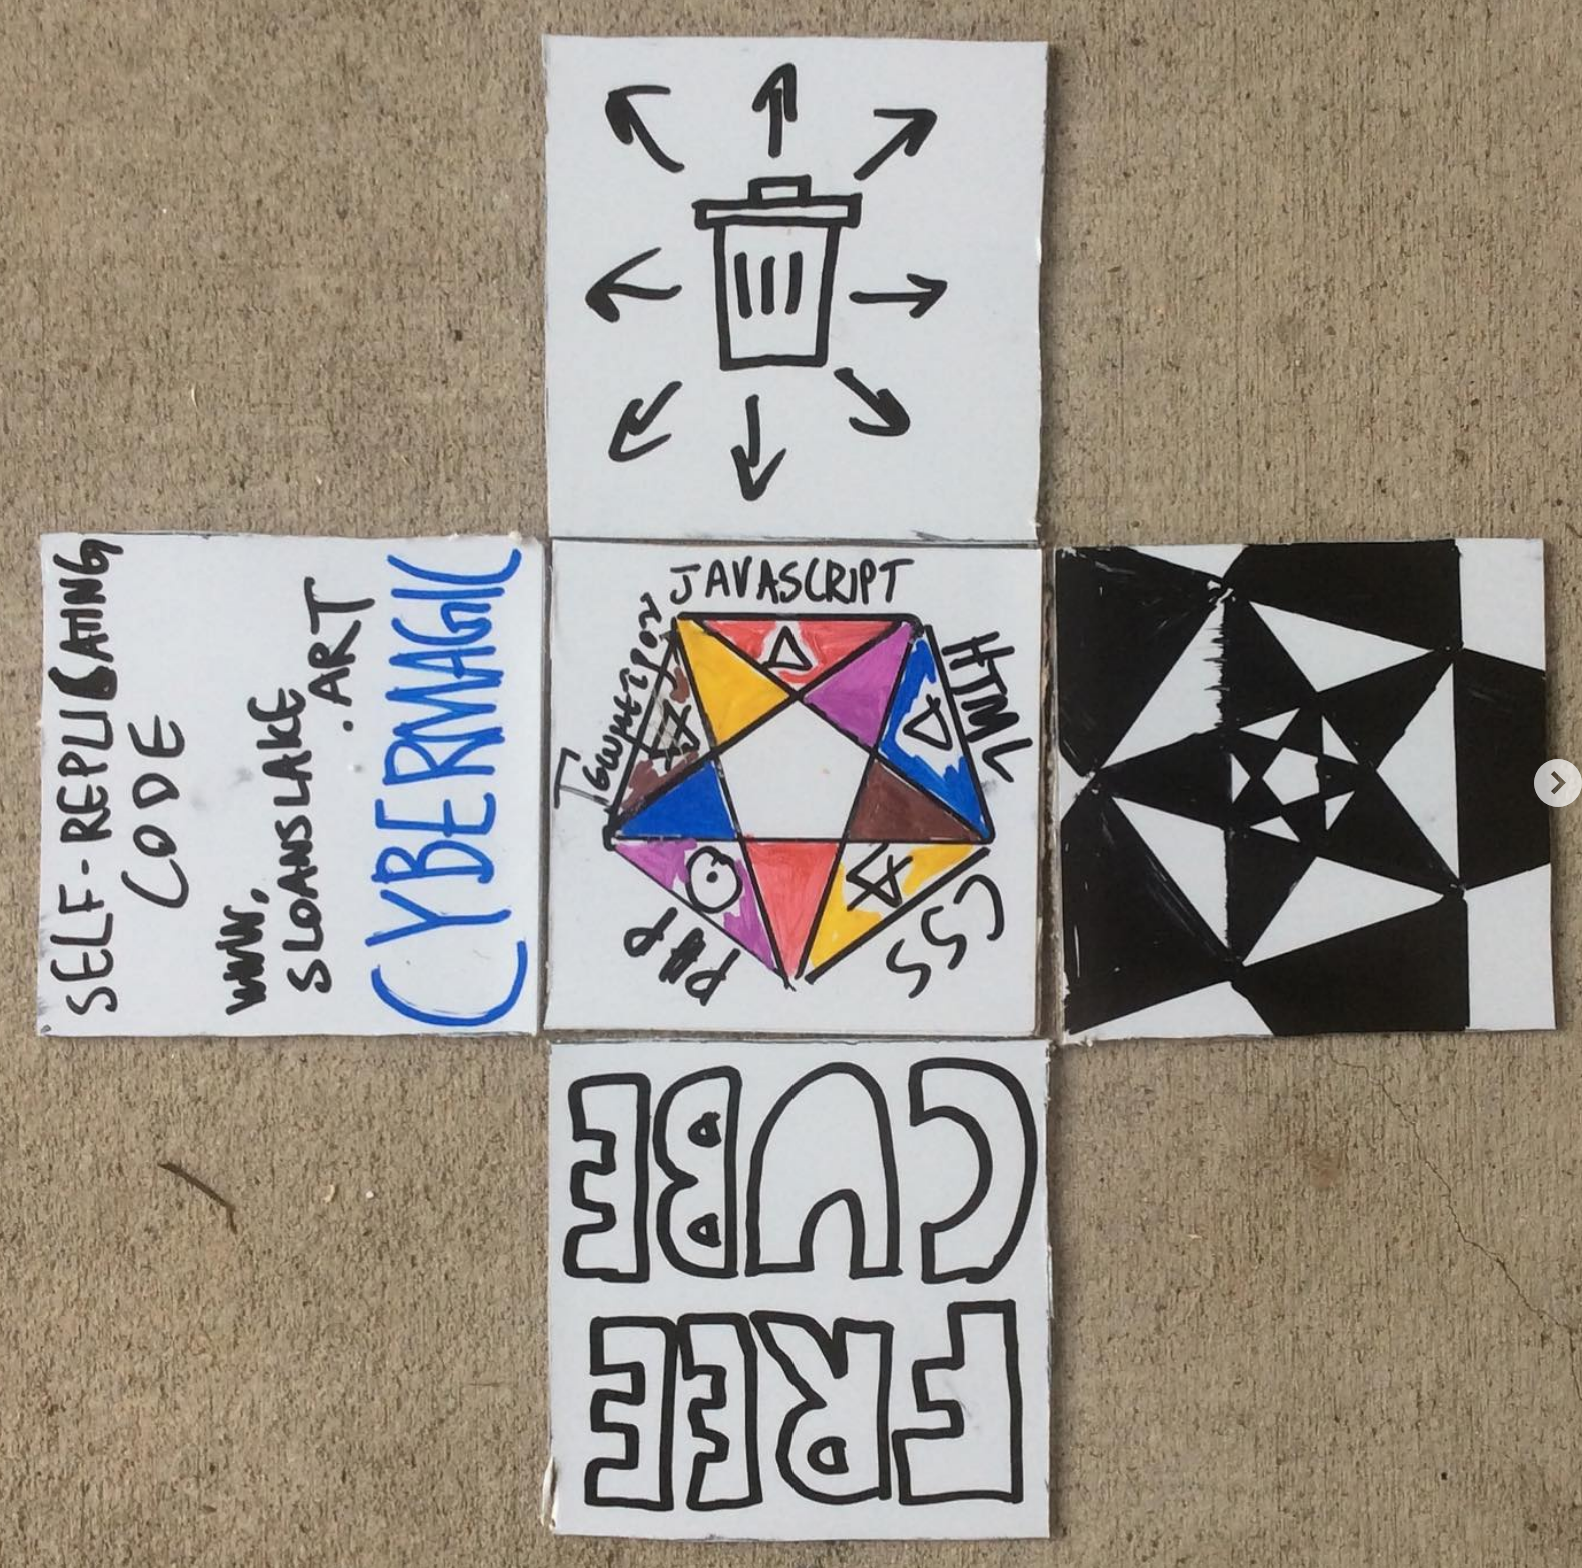 SELF-REPLICATING
CODE
WWW.
SLOANSLAKE
.ART
CYBERMAGIC
JAVASCRIPT
HTML
CSS
PHP
FREE
CUBE